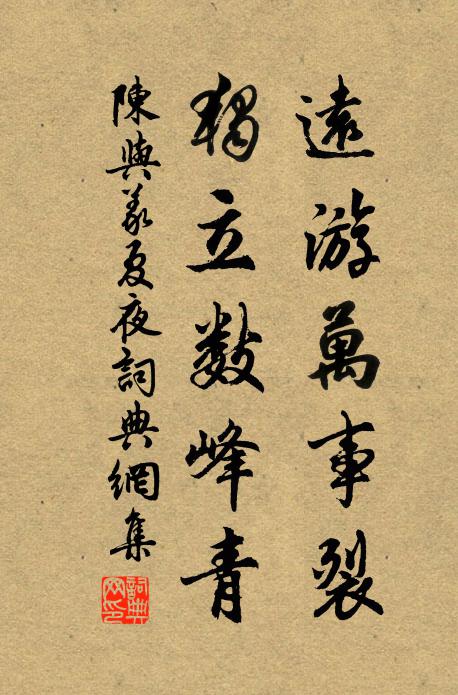 遠游萬事裂
獨立數峰青
陳與義夏夜詞典網集
詞典網印